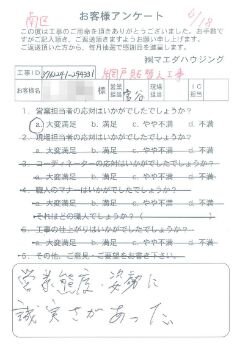 南区
お客様アンケート
6/18
この度は工事のご用命を頂きありがとうございました。お手数で
すがご記入頂き、ご返送頂きますようお願い申し上げます。
ご返送頂いた方から、毎月抽選で感謝品を進呈します。
㈱マエダハウジング
工事ID
網戸貼替え工事
お客様名
様
営業担当
宮谷
現場担当
IC担当
1. 営業担当者の応対はいかがでしたでしょうか?
a. 大変満足 b. 満足 c. やや不満 d. 不満
2. 現場担当者の応対はいかがでしたでしょうか?
a. 大変満足 b. 満足 c. やや不満 d. 不満
3. コーディネーターの応対はいかがでしたでしょうか?
a. 大変満足 b. 満足 c. やや不満 d. 不満
4. 職人のマナーはいかがでしたでしょうか?
a. 大変満足 b. 満足 c. やや不満 d. 不満
それはどの職人でしょうか?(
5. 工事の仕上がりはいかがでしたでしょうか?
a. 大変満足 b. 満足 c. やや不満 d. 不満
6. その他、ご意見・ご要望をお書き下さい。
営業態度・姿勢に
誠実さがあった。